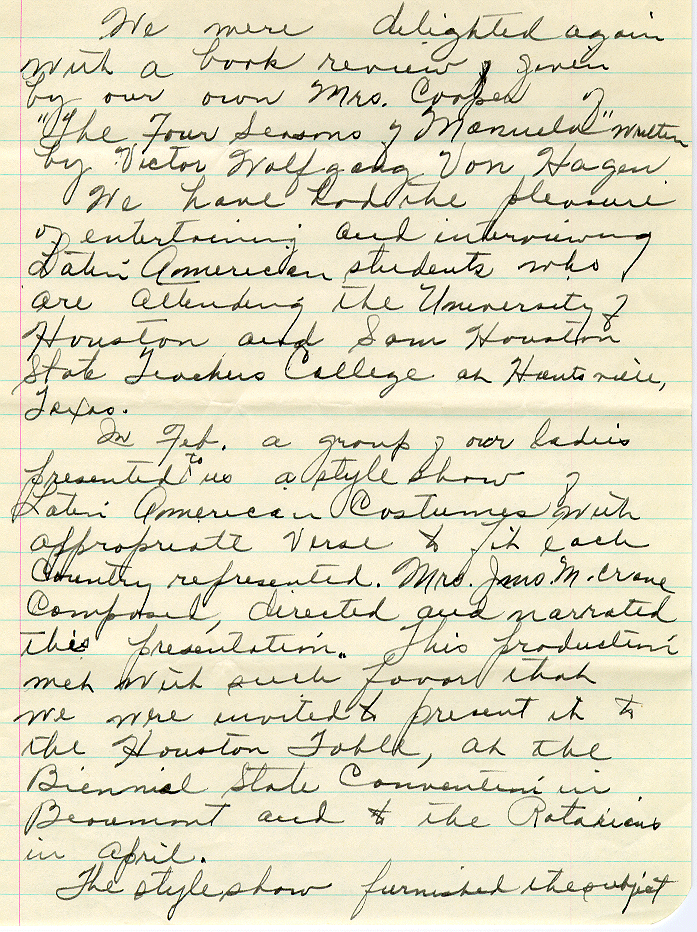 We were delighted again
with a book review, given
by our own Mrs. Cooper of
"The Four Seasons of Manuela" written
by Victor Wolfgang Von Hagen
We have had the pleasure
of entertaining and interviewing
Latin American students who
are attending the University of
Houston and Sam Houston
State Teachers College at Huntsville,
Texas.
In Feb. a group of our ladies
presented to us a style show of
Latin American Costumes with
appropriate Verse to fit each
Country represented. Mrs. Jmo. M. Crane
Composed, directed and narrated
this presentation. This production
met with such favor that
we were invited to present it to
the Houston Table, at the
Biennial State Convention in
Beaumont and to the Rotarians
in April.
The style show furnished the subject